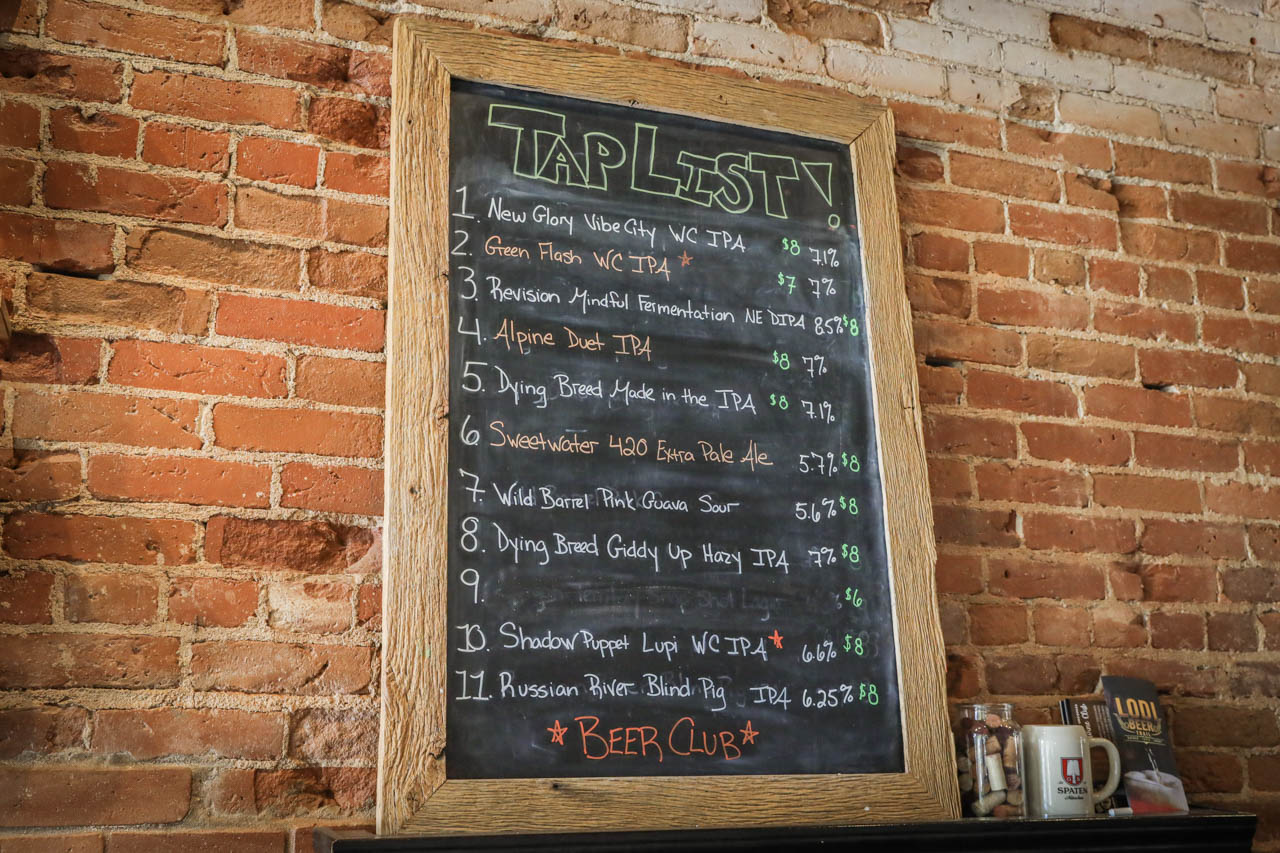 TAP LIST!
1. New Glory Vibe City WC IPA $8 7.1%
2. Green Flash WC IPA ☆ $7 7%
3. Revision Mindful Fermentation NE DIPA 8.5% $8
4. Alpine Duet IPA $8 7%
5. Dying Breed Made in the IPA $8 7.1%
6 Sweetwater 420 Extra Pale Ale 5.7% $8
7. Wild Barrel Pink Guava Sour 5.6% $8
8. Dying Breed Giddy Up Hazy IPA 7% $8
9. $6
10. Shadow Puppet Lupi WC IPA ☆ 6.6% $8
11. Russian River Blind Pig IPA 6.25% $8
☆ BEER CLUB ☆
LODI
BEER
TRAIL
SPATEN